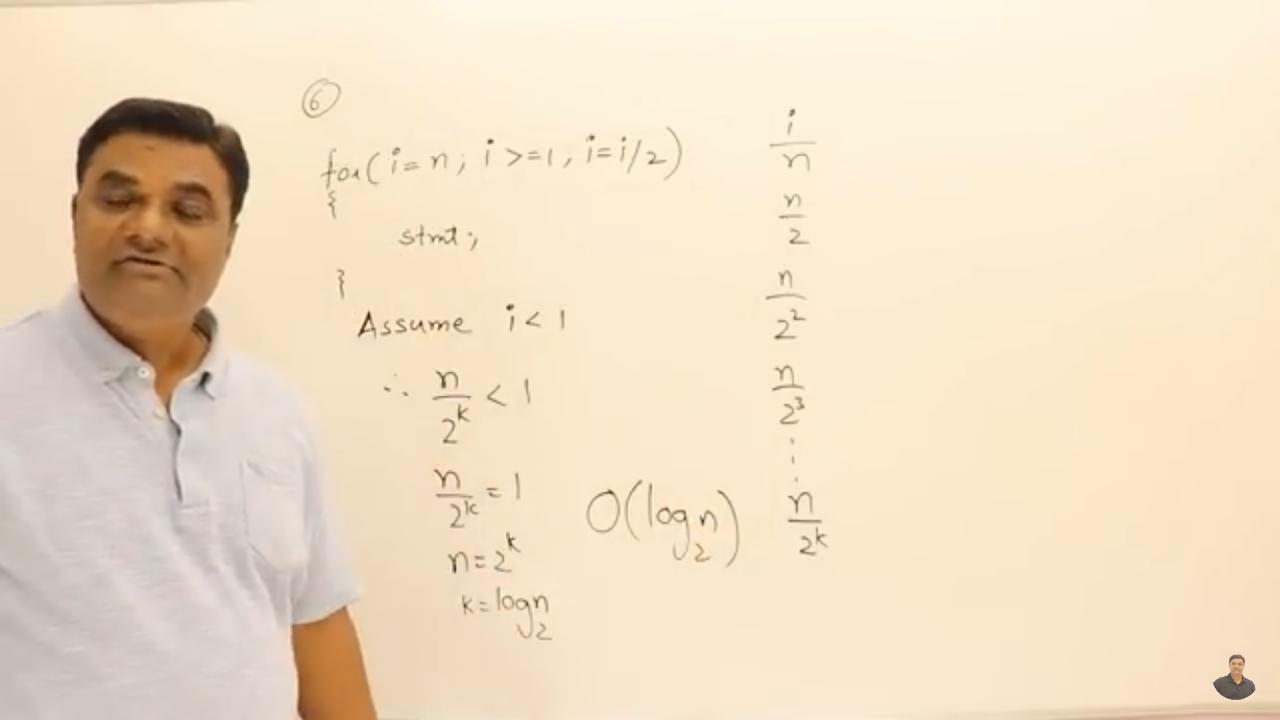 6
for(i=n; i>=1, i=i/2)
{
stmt;
}
Assume i<1
∴ n/2^k < 1
n/2^k = 1
n=2^k
k=log₂n
O(log₂n)
i
n
n/2
n/2²
n/2³
⋮
n/2^k